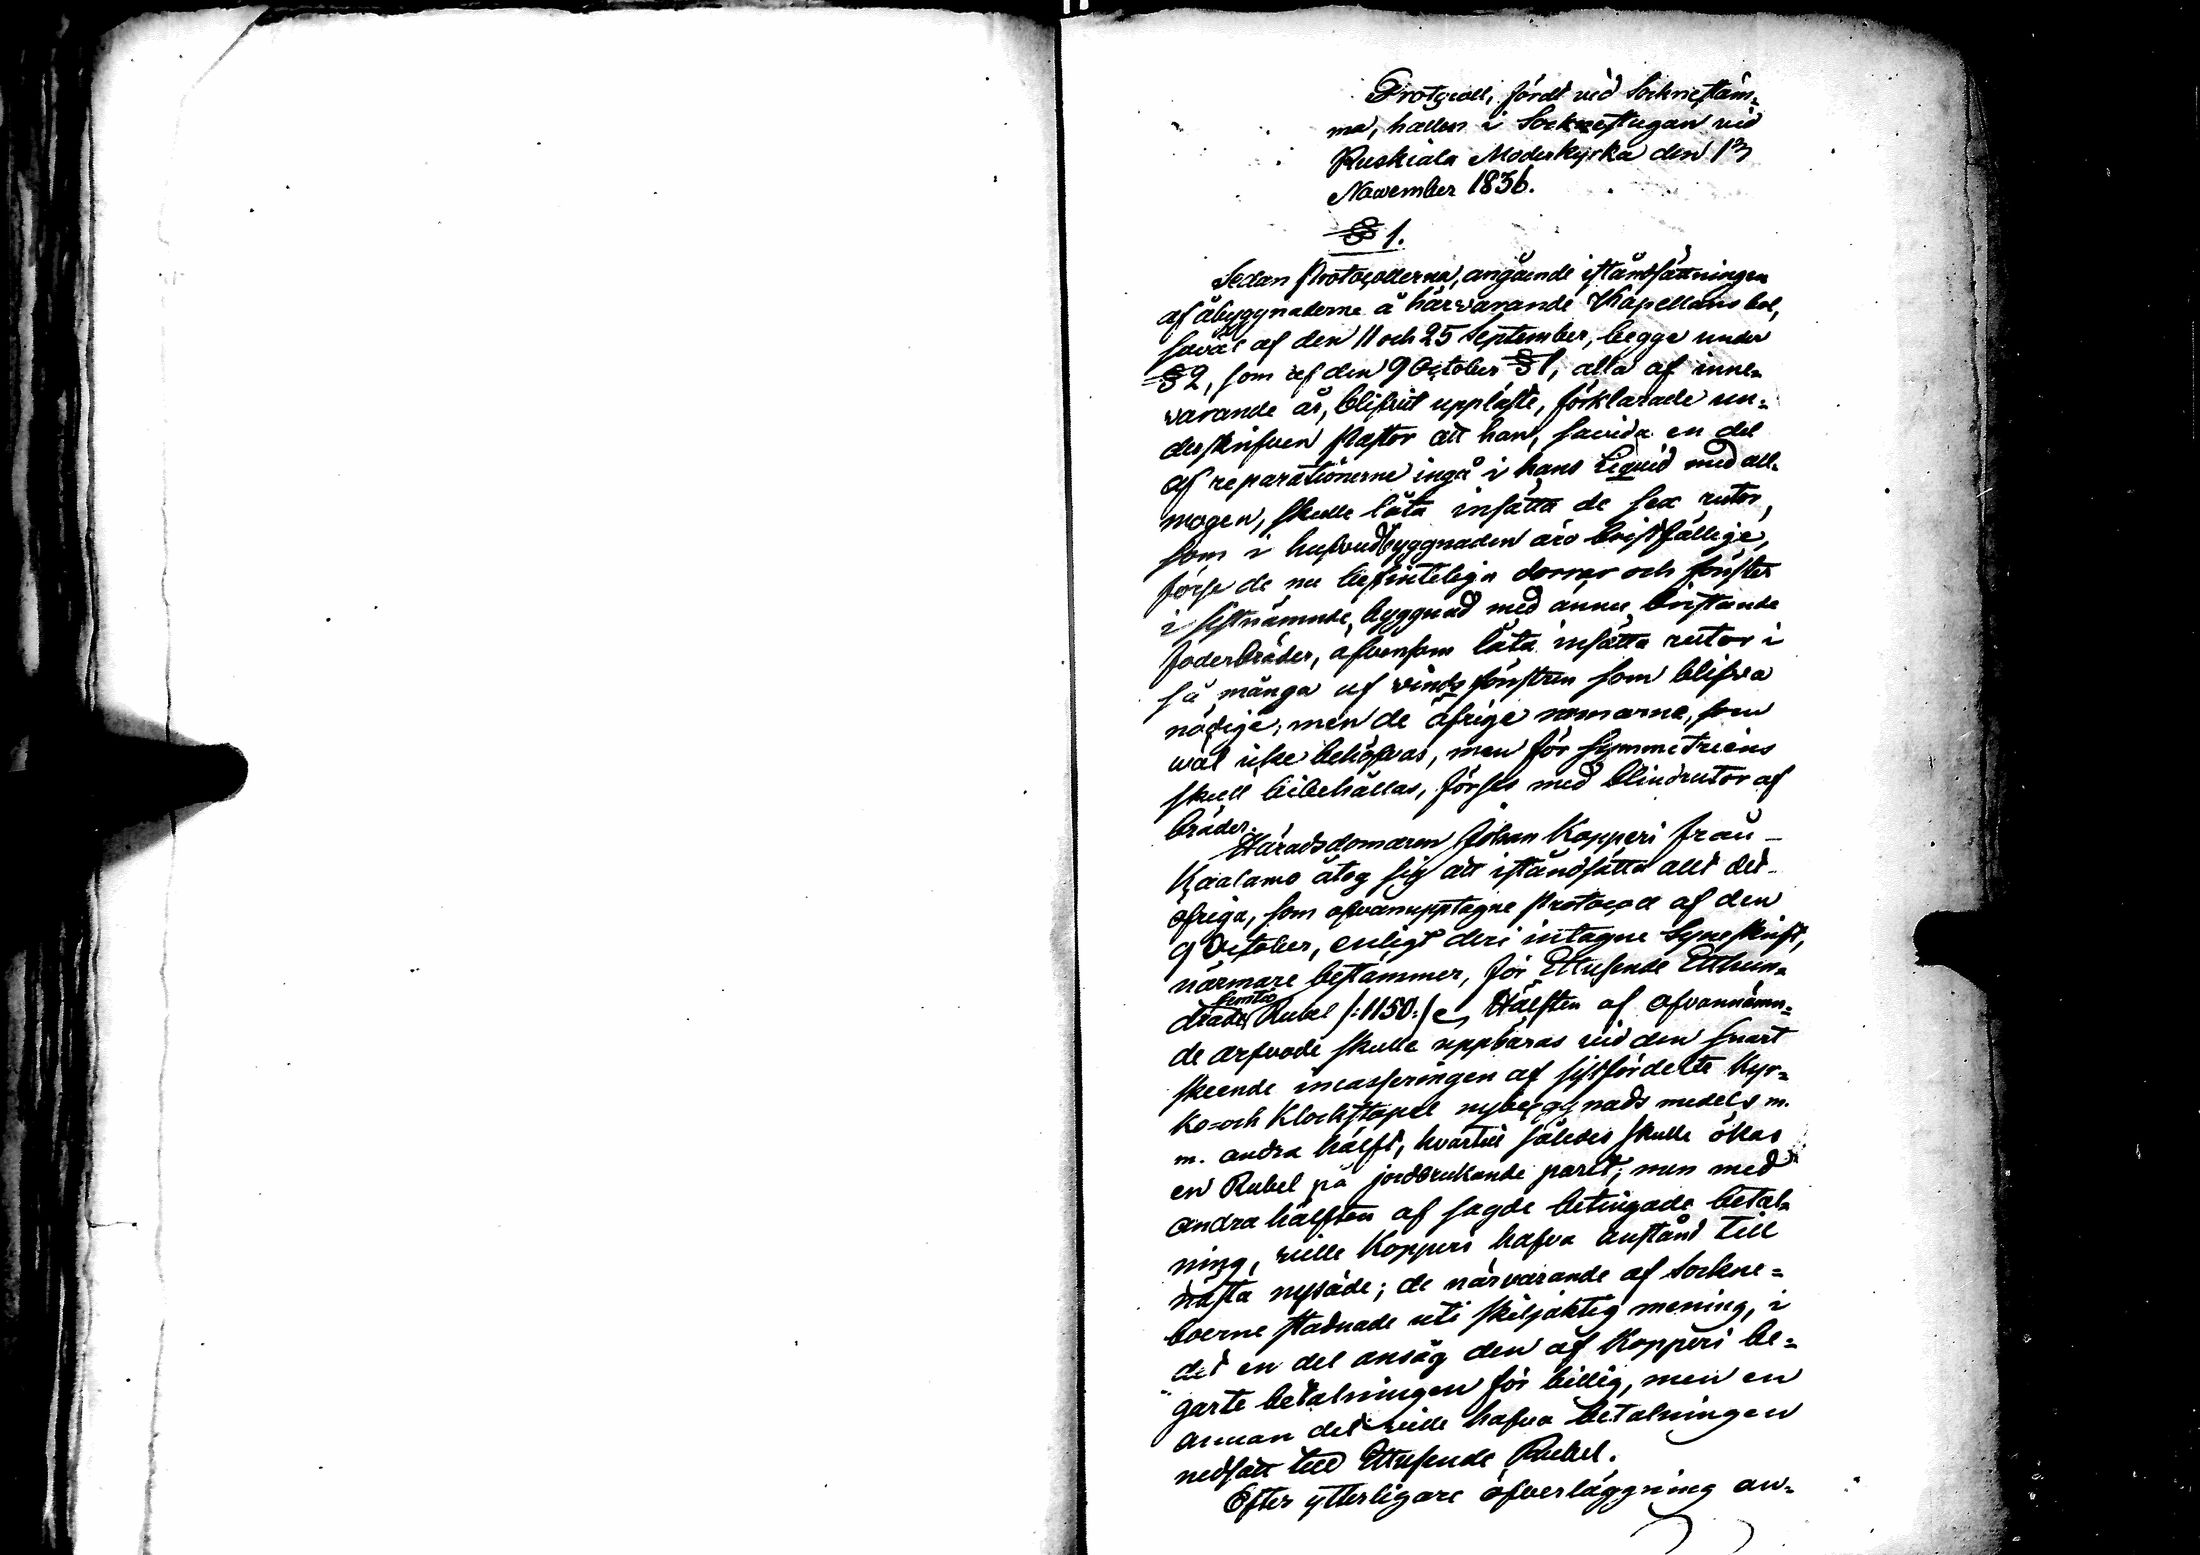 Protocoll, fördt vid Sockneståm-
ma, hållen i Socknestugan vid
Ruskiala Moderkyrka den 13
November 1836.
§ 1.
Sedan Protocollerna, angående iståndsättningen
af åbyggnaderne å härvarande Kapellans bol,
såväl af den 11 och 25 September, begge under
§ 2, som af den 9 October § 1, alla af inne-
varande år, blifvit uppläste, förklarade un-
derskrifven Pastor att han, såvida en del
af reparationerne ingå i hans Liquid med all-
mogen, skulle låta insätta de sex rutor,
som i hufvudbyggnaden äro bristfällige,
förse de nu befinteliga dörrar och fönster
i sistnämnde byggnad med ännu bristande
foderbräder, äfvensom låta insätta rutor i
så många af vindsfönstren som blifva
nödige; men de öfrige ramarne, som
wäl icke behöfvas, men för Symmetriens
skull bibehållas, förses med blindrutor af
bräder.
Häradsdomaren Johan Kopperi från
Kaalamo åtog sig att iståndsätta allt det
öfriga, som ofvanupptagne Protocoll af den
9 October, enligt deri intagne Syneskrift,
närmare bestämmer, för Ettusende Etthun-
drade femtio Rubel /:1150:/ Hälften af ofvannämn-
de arfvode skulle uppbäras vid den snart
skeende incasseringen af sistfördelte Kyr-
ko- och Klockstapel nybyggnads medels m.
m. andra hälft, hvartill således skulle ökas
en Rubel på jordbrukande paret; men med
andra hälften af sagde betingade betal-
ning, ville Kopperi hafva anstånd till
nästa nysäde; de närvarande af Sockne-
boerne stadnade uti skiljaktig mening, i
det en del ansåg den af Kopperi be-
gärte betalningen för billig, men en
annan del ville hafva betalningen
nedsatt till Ettusende Rubel.
Efter ytterligare öfverläggning an-